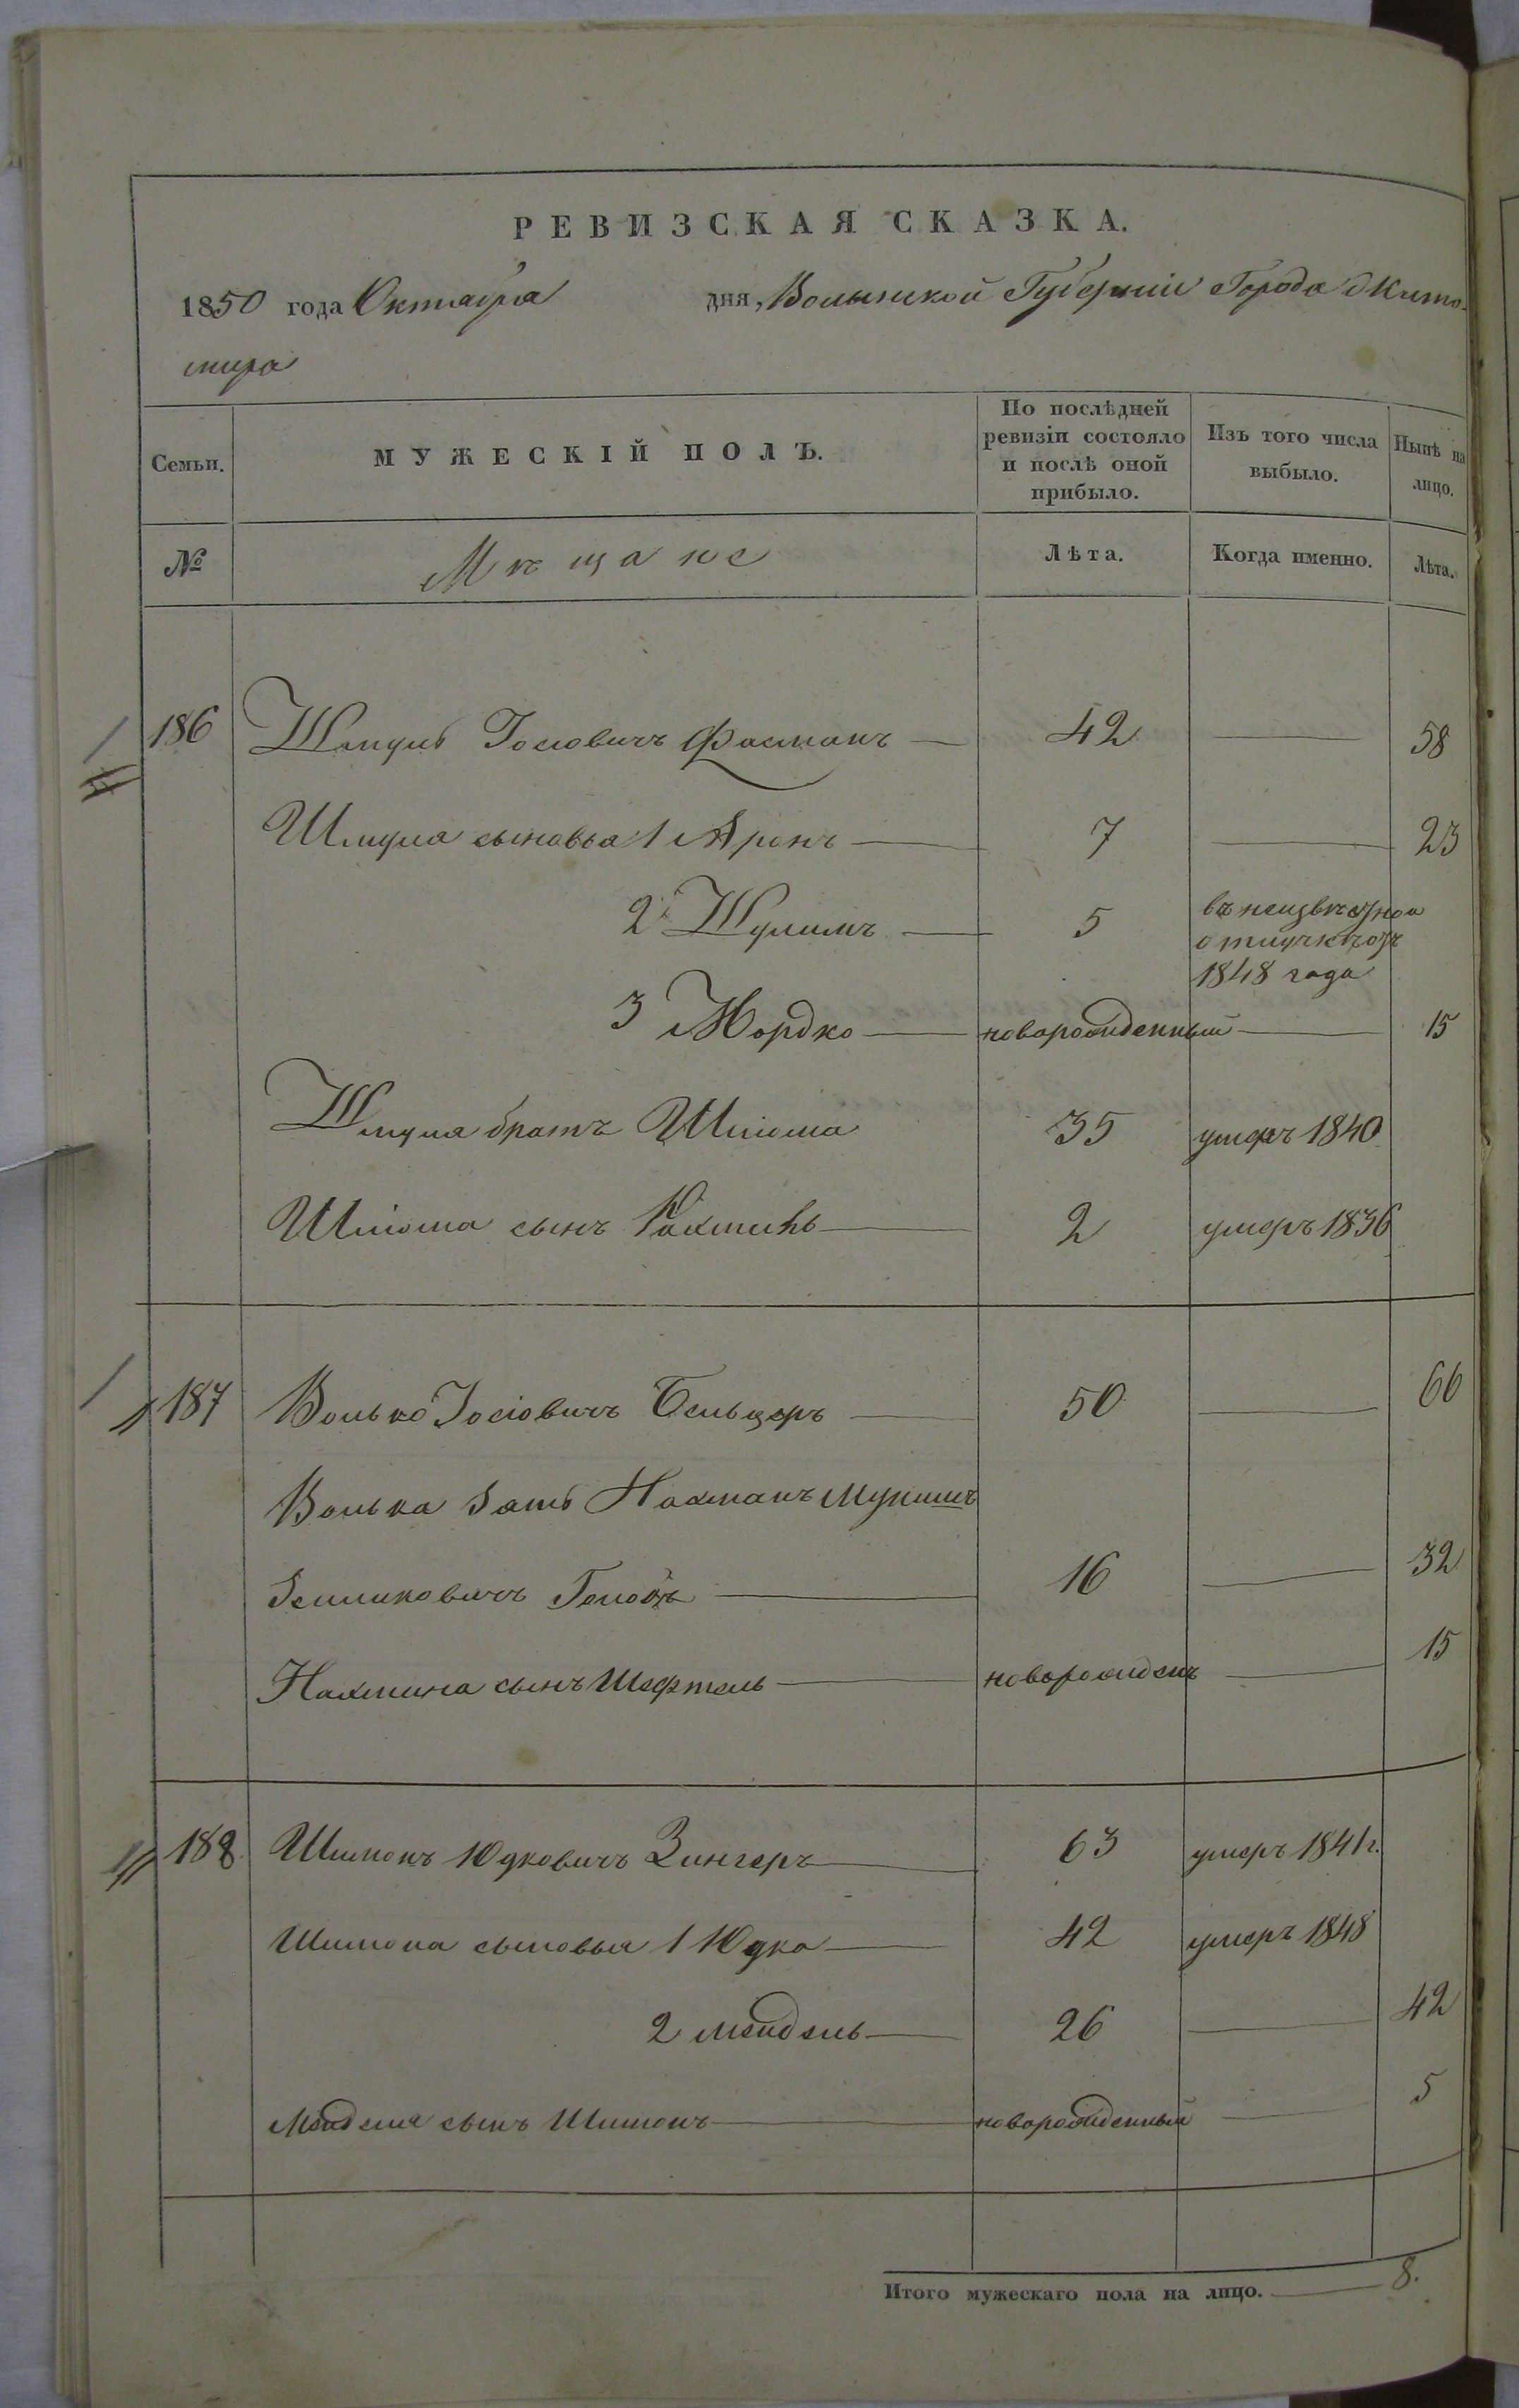 РЕВИЗСКАЯ СКАЗКА.
1850 года Октября дня, Волынской Губерніи Города Жито-
мира
Семьи.
МУЖЕСКІЙ ПОЛЪ.
По послѣдней
ревизіи состояло
и послѣ оной
прибыло.
Изъ того числа
выбыло.
Нынѣ на
лицо.
№ Мѣщане Лѣта. Когда именно. Лѣта.
186 Шмуль Іосіовичъ Фасманъ 42 58
Шмуля сыновья 1 Аронъ 7 23
2 Шулимъ 5 въ неизвѣстной
отлучкѣ съ
1848 года
3 Мордко новорожденный 15
Шмуля братъ Шліома 35 умеръ 1840
Шліома сынъ 2 умеръ 1836
187 Волько Іосіовичъ Бельцеръ 50 66
Волька зять Нахманъ Мунишъ
Зеликовичъ 16 32
Нахмана сынъ Шефтель новорожденъ 15
188 Шимонъ Юдковичъ Зингеръ 63 умеръ 1841 г.
Шимона сыновья 1 Юдко 42 умеръ 1848
2 Мендель 26 42
Менделя сынъ Шимонъ новорожденный 5
Итого мужескаго пола на лицо. 8.